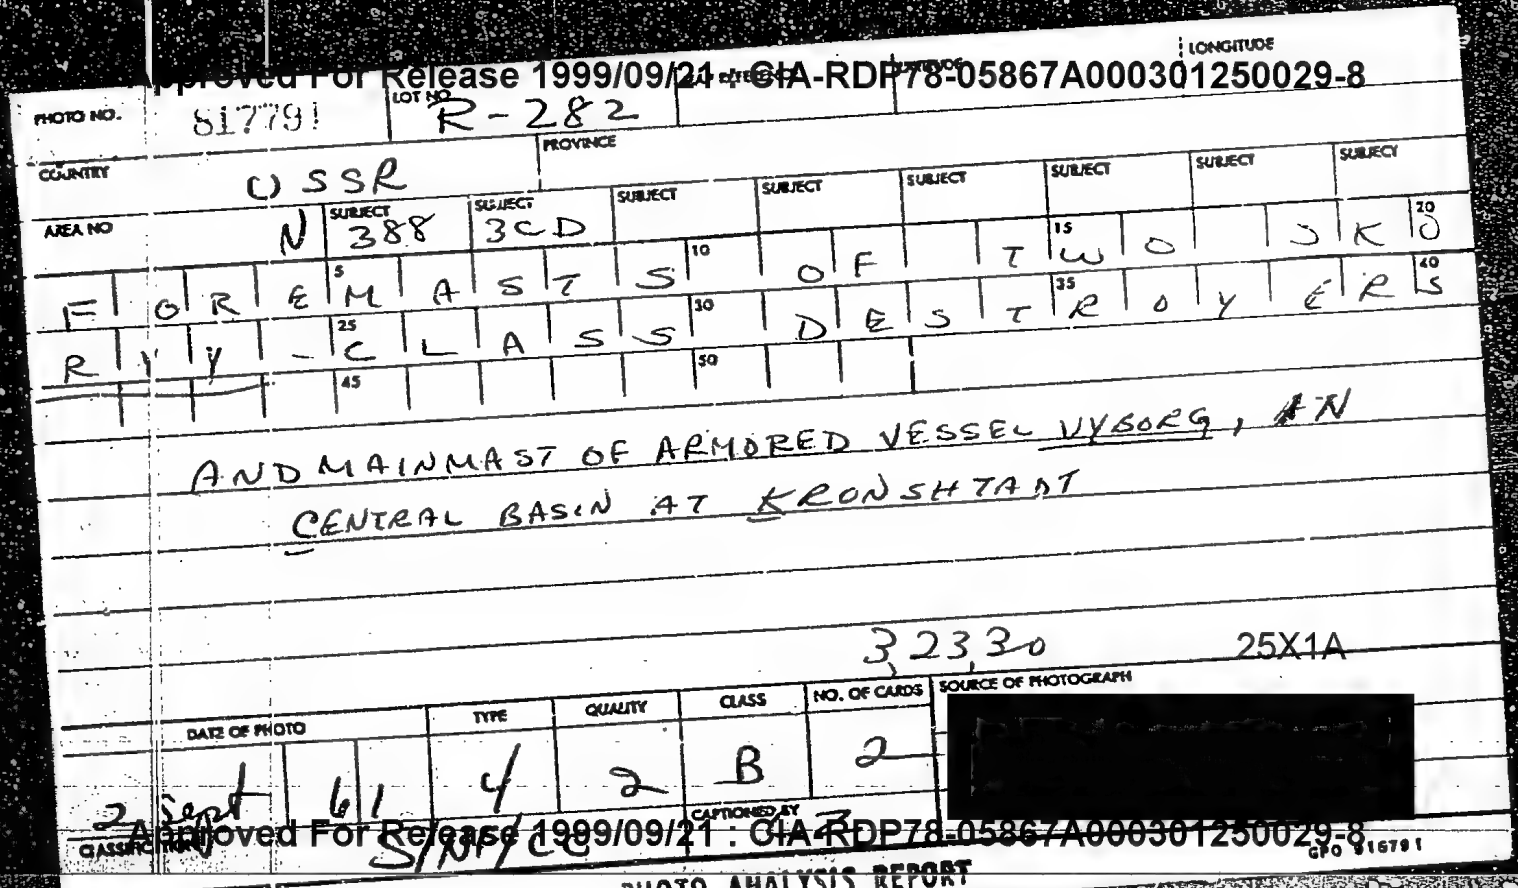 LONGITUDE
Approved For Release 1999/09/21 : CIA-RDP78-05867A000301250029-8
PHOTO NO. 817791 LOT NO. R-282
COUNTRY USSR PROVINCE
AREA NO N SUBJECT 388 SUBJECT 3CD SUBJECT SUBJECT SUBJECT SUBJECT SUBJECT SUBJECT
5 10 15 20
FOREMASTS OF TWO SKO
25 30 35 40
RYY-CLASS DESTROYERS
45 50
AND MAINMAST OF ARMORED VESSEL VYBORG, IN
CENTRAL BASIN AT KRONSHTADT
32330 25X1A
DATE OF PHOTO TYPE QUALITY CLASS NO. OF CARDS SOURCE OF PHOTOGRAPH
2 Sept 61 4 2 B 2
CAPTIONED BY
Approved For Release 1999/09/21 : CIA-RDP78-05867A000301250029-8
CLASSIFICATION GPO 916791
PHOTO ANALYSIS REPORT